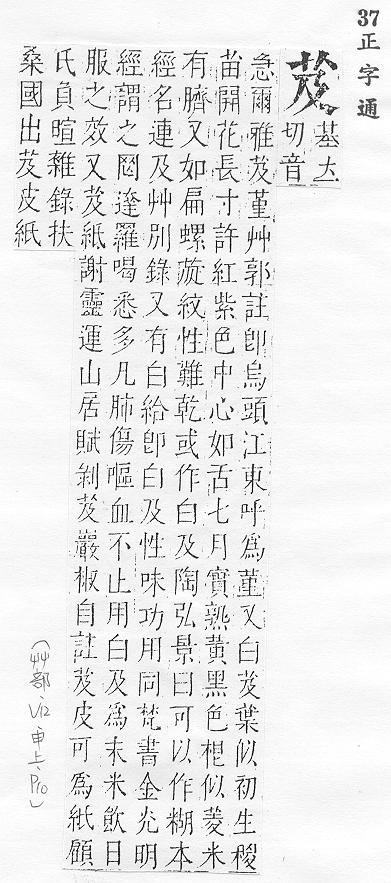 37正字通
芨
基立
切音
急爾雅芨堇艸郭註卽烏頭江東呼爲堇又白芨葉似初生稷
苗開花長寸許紅紫色中心如舌七月實熟黃黑色根似菱米
有臍又如扁螺旋紋性難乾或作白及陶弘景曰可以作糊本
經名連及艸別錄又有白給卽白及性味功用同梵書金光明
經謂之罔達羅喝悉多凡肺傷嘔血不止用白及爲末米飲日
服之效又芨紙謝靈運山居賦剝芨巖椒自註芨皮可爲紙顧
氏負暄雜錄扶
桑國出芨皮紙
(艸部、V12申上、P10)